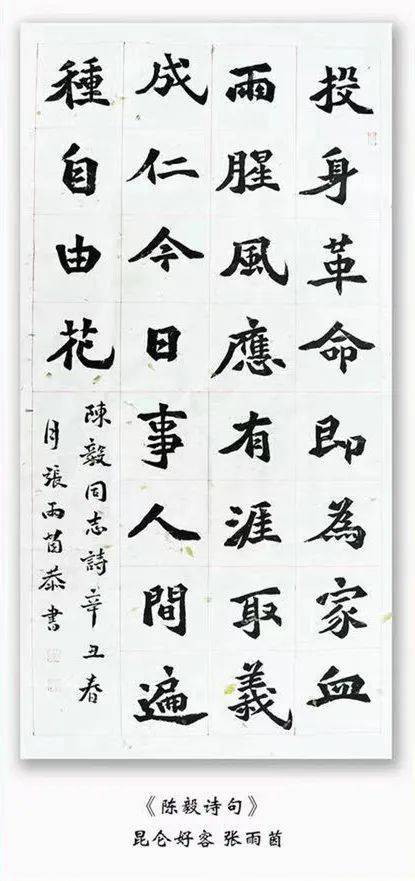 投身革命即為家血
雨腥風應有涯取義
成仁今日事人間遍
種自由花
陳毅同志詩辛丑春
月張雨茵恭書
《陈毅诗句》
昆仑好客 张雨茵